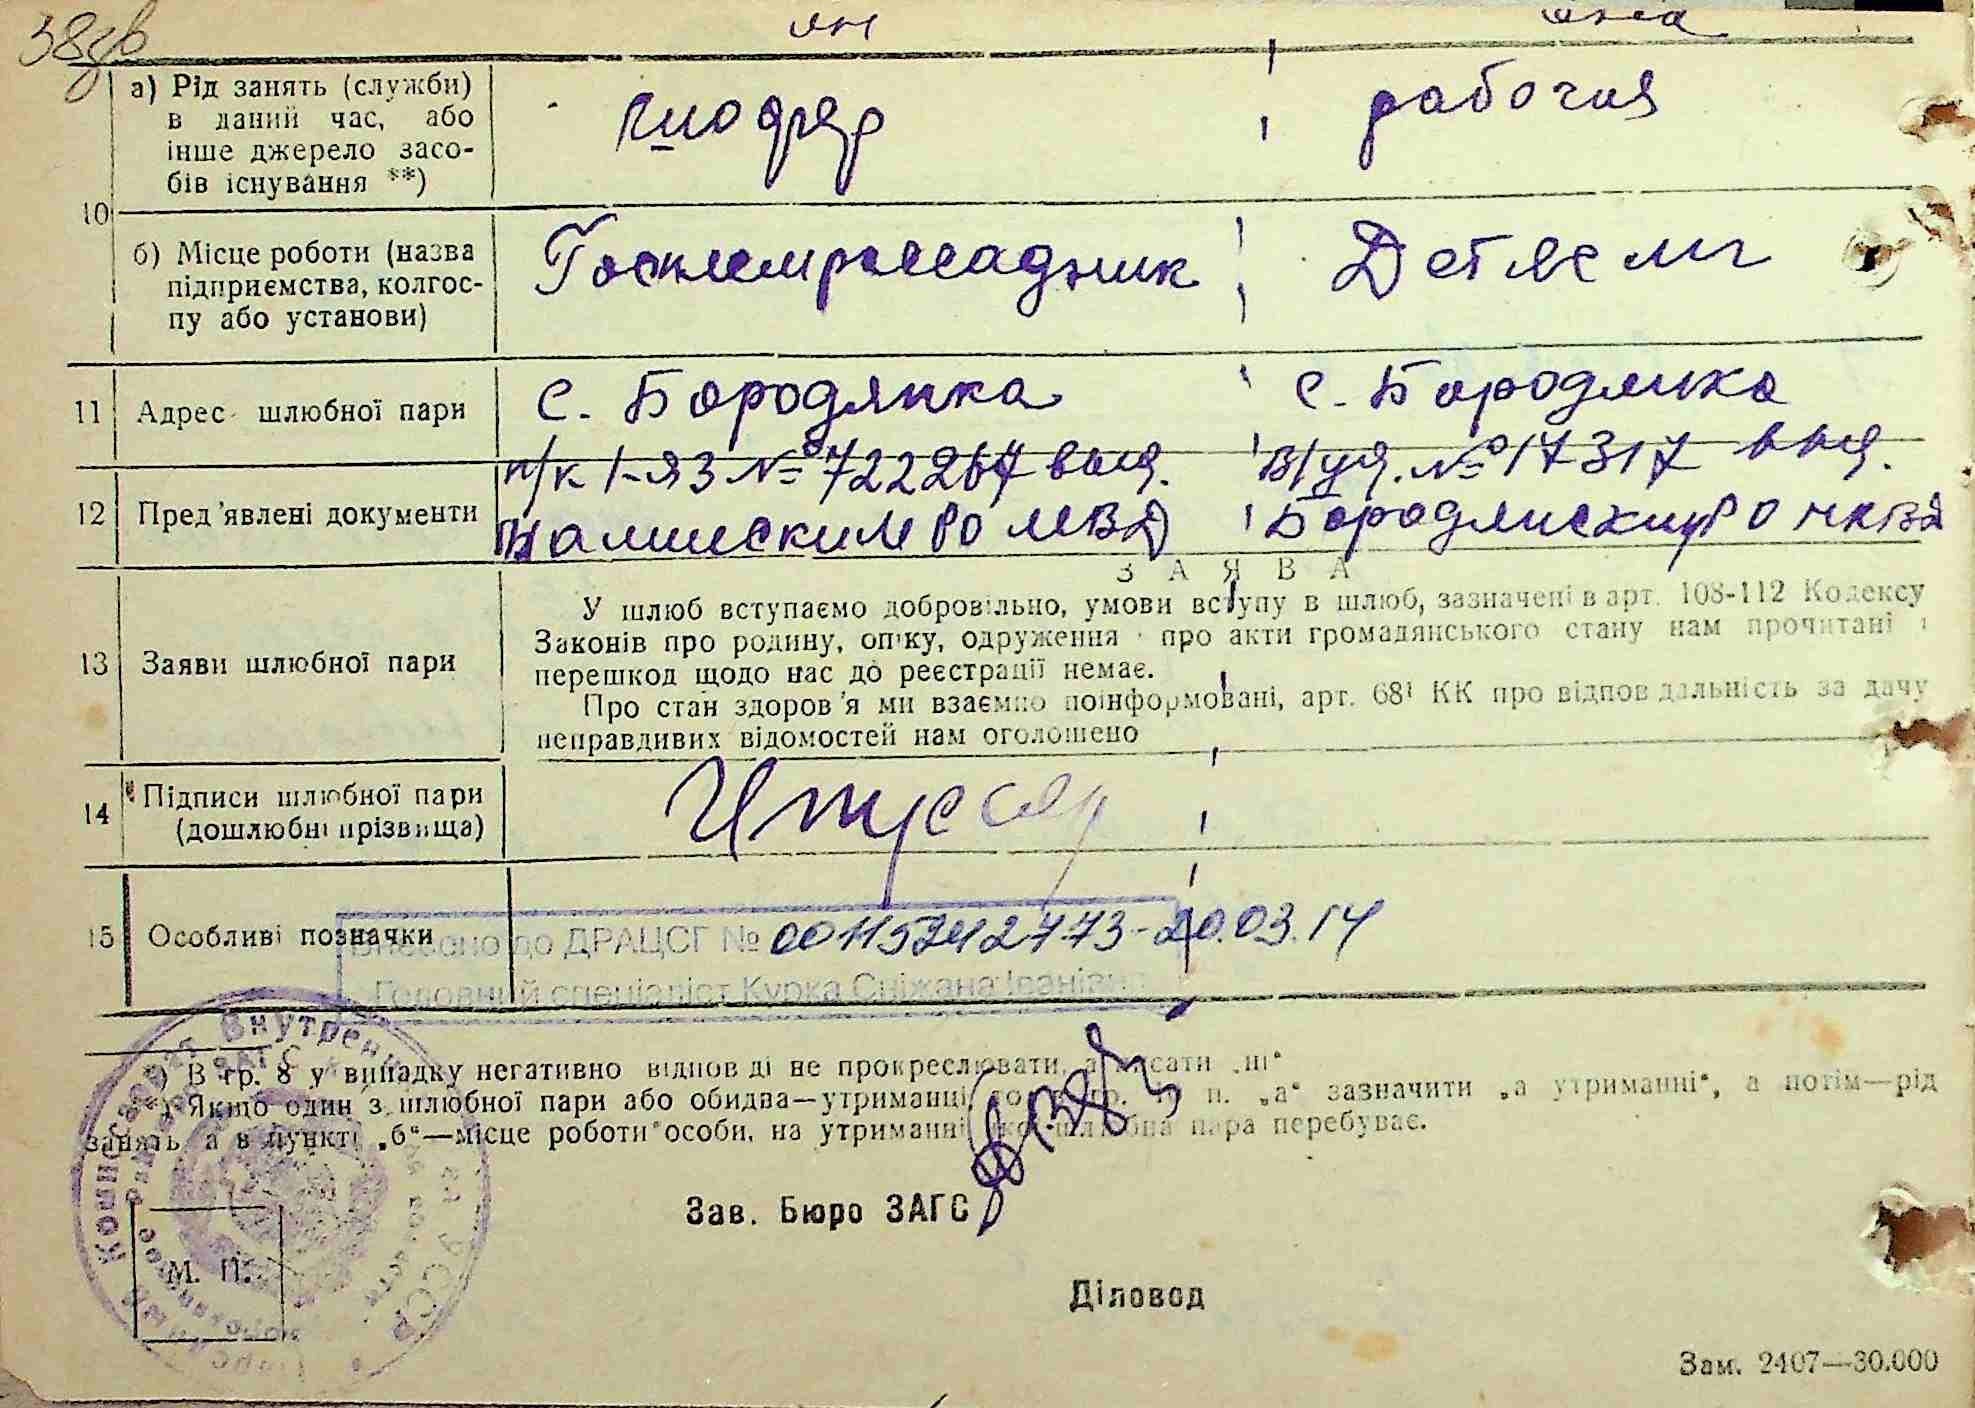 38зв
он она
а) Рід занять (служби) в даний час, або інше джерело засобів існування **) шофер рабочая
10
б) Місце роботи (назва підприємства, колгоспу або установи) Госплемрассадник Детясли
11 Адрес шлюбної пари с. Бородянка с. Бородянка
12 Пред'явлені документи п/к 1-ЯЗ № 722267 выд. РО МВД В/уд. № 17317 выд. Бородянским РО НКВД
ЗАЯВА
13 Заяви шлюбної пари
У шлюб вступаємо добровільно, умови вступу в шлюб, зазначені в арт. 108-112 Кодексу
Законів про родину, опіку, одруження про акти громадянського стану нам прочитані і
перешкод щодо нас до реєстрації немає.
Про стан здоров'я ми взаємно поінформовані, арт. 68¹ КК про відповідальність за дачу
неправдивих відомостей нам оголошено
14 Підписи шлюбної пари
(дошлюбні прізвища)
15 Особливі позначки
Внесено до ДРАЦСГ № 00115242773-20.03.14
Головний спеціаліст Курка Сніжана Іванівна
*) В гр. 8 у випадку негативно відповіді не прокреслювати, а писати „ні“
**) Якщо один з шлюбної пари або обидва—утриманці, то в гр. 10 п. „а“ зазначити „а утриманні“, а потім—рід
занять, а в пункті „б“—місце роботи особи, на утриманні якої шлюбна пара перебуває.
Зав. Бюро ЗАГС
М. П.
Діловод
Зам. 2407—30.000